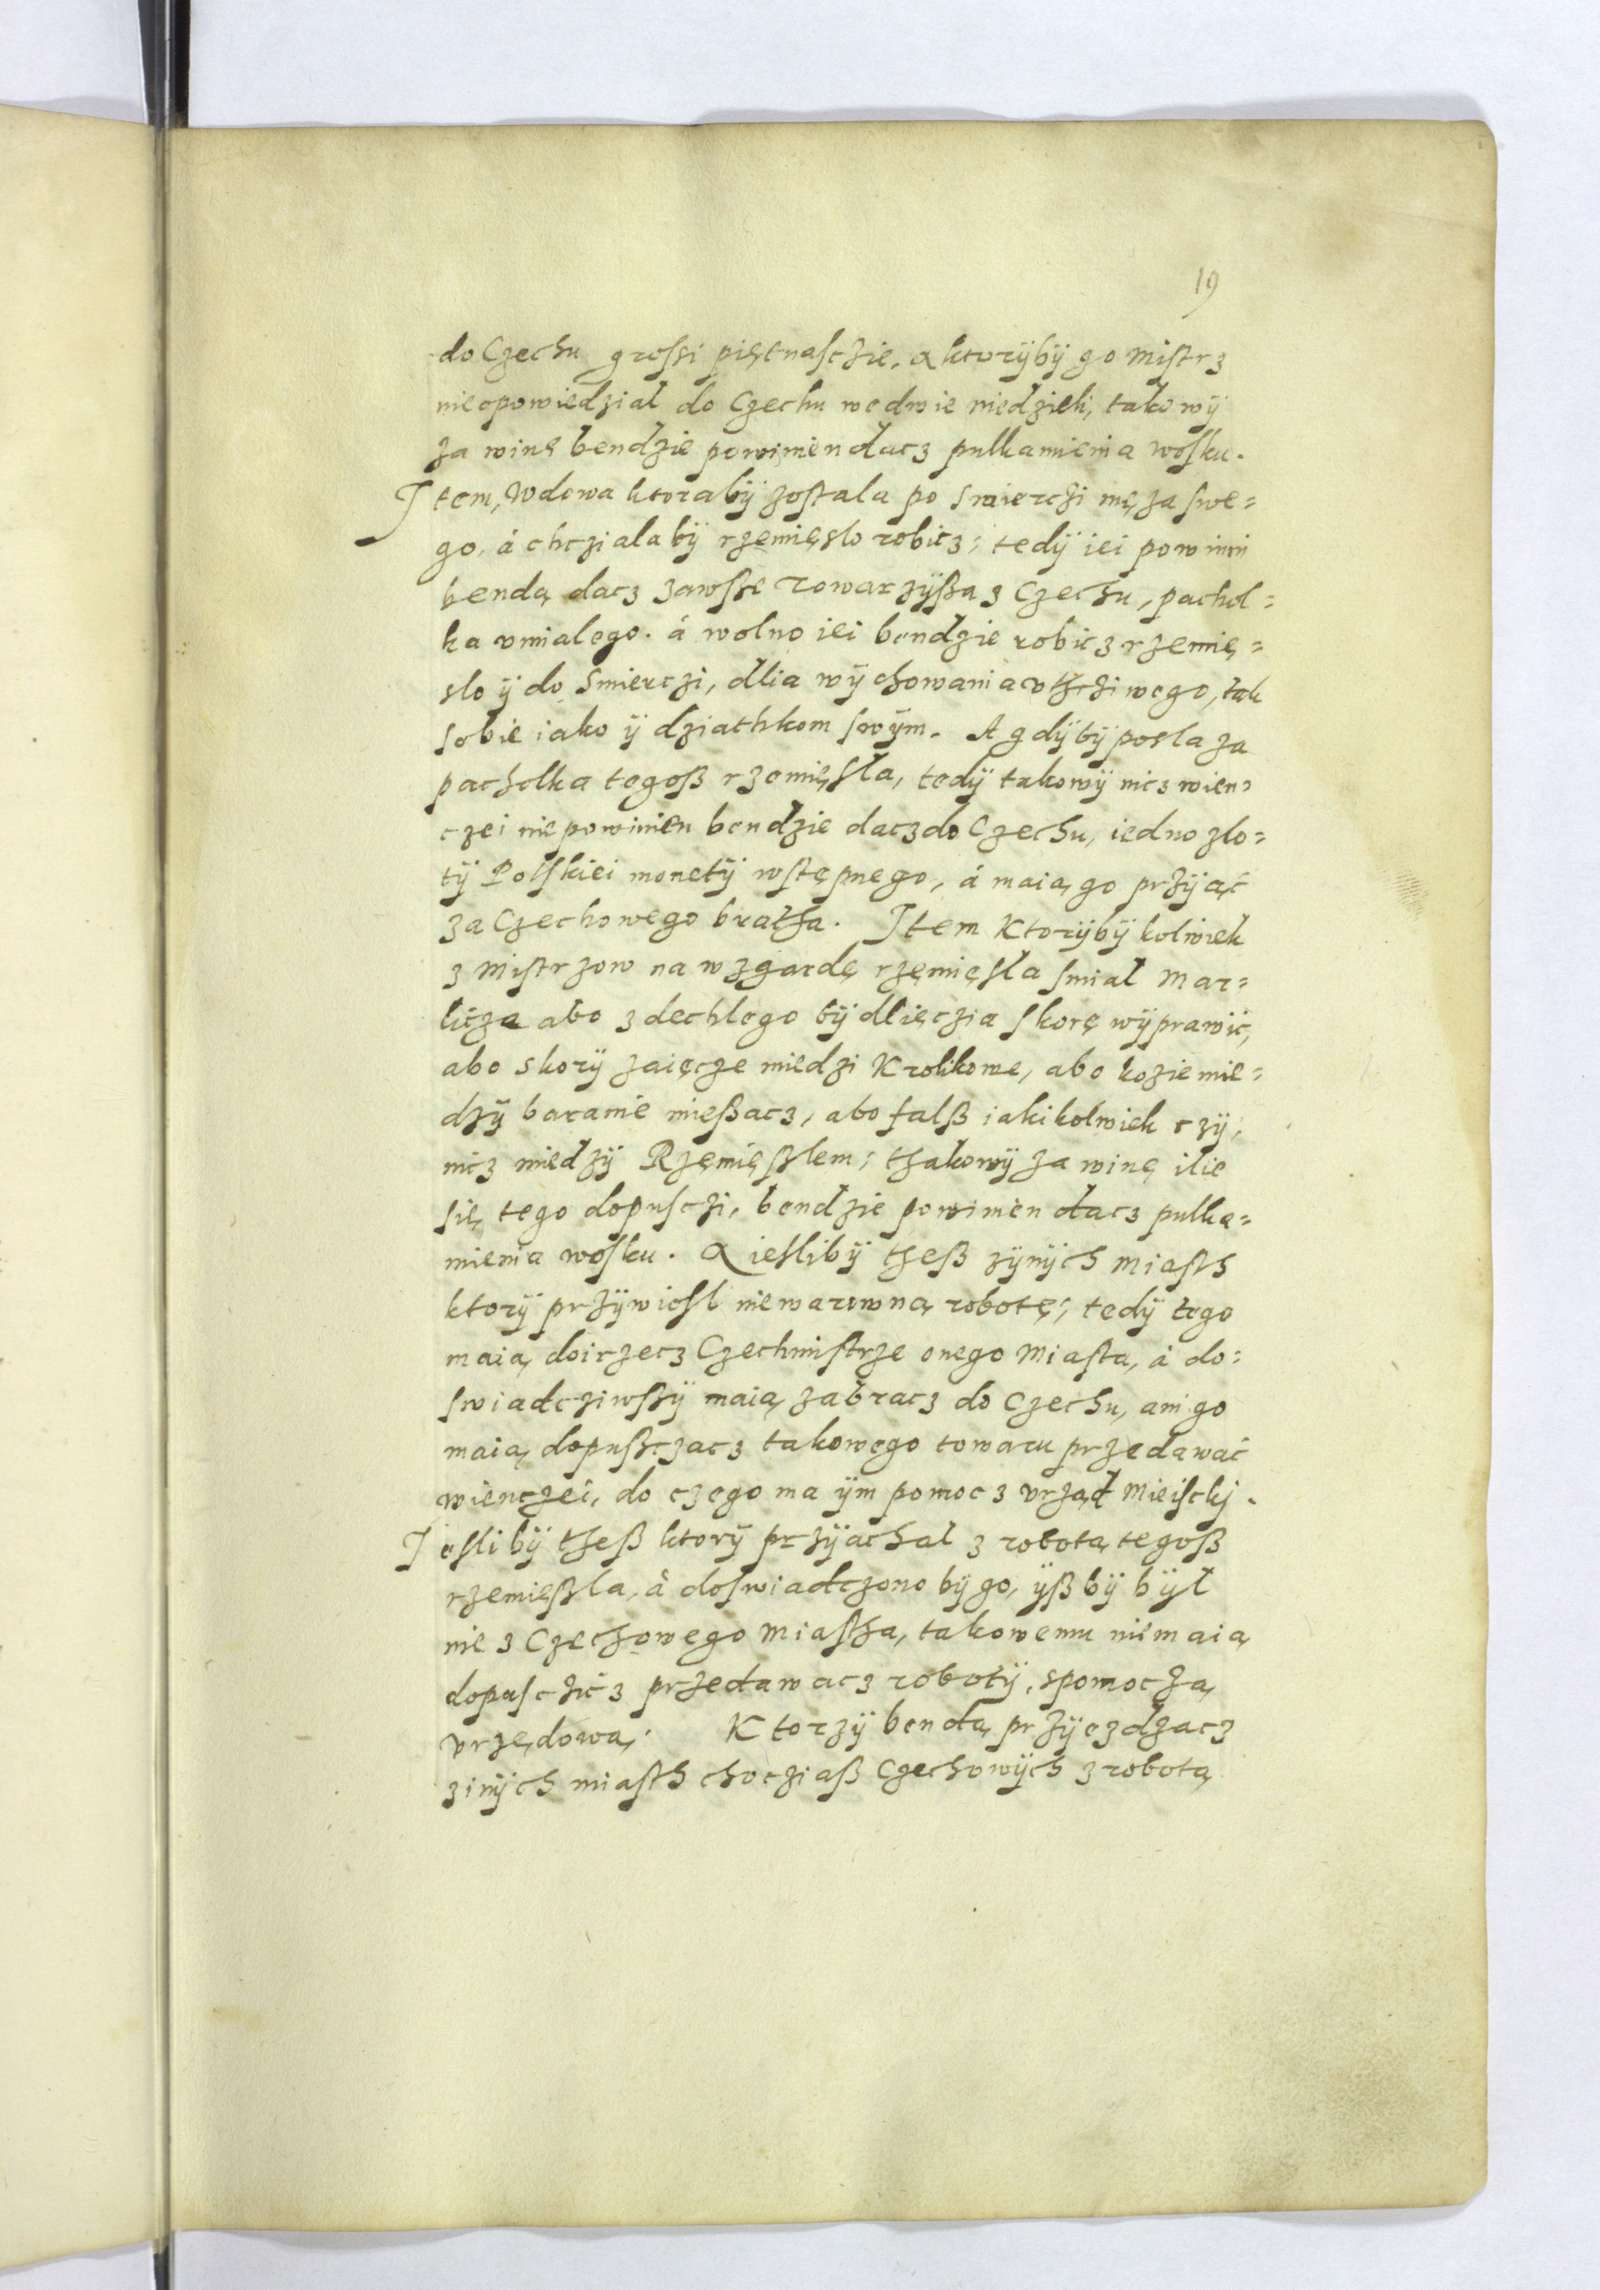 19
do Czechu groſſi piętnaſczie. A ktorÿbÿ go Miſtrz
nieopowiedział do Czechu wedwie niedzieli, takowÿ
za winę bendzie powinien dacz pulkamienia woſku.
Item, Wdowa ktorabÿ zoſtala po smierczi męza ſwe=
go, á chczialabÿ rzemięslo robicz; tedÿ iei powinni
bendą dacz zawſſe Towarzÿßa z Czechu, pachol=
ka vmialego. á wolno iei bendzie robicz rzemię=
slo ÿ do Smierczi, dlia wÿchowania vthcziwego, tak
sobie iako ÿ dziathkom ſwÿm. A gdÿbÿ posla za
pacholka tegoß rzemięſla, tedÿ takowÿ nicz wien=
czei nie powinien bendzie dacz do Czechu, iedno zlo=
tÿ Polſkiei monetÿ wſtępnego, á maią go przÿiąć
za Czechowego bratha. Item Ktorÿbÿ kolwiek
z Miſtrzow na wzgardę rzęmięſla ſmial Mar=
licza abo zdechlego bÿdlięczia ſkorę wÿprawić,
abo skorÿ zaięcze miedzi Krolikowe, abo kozie mie=
dzÿ baranie mießacz, abo falß iakikolwiek czÿ,
nicz miedzÿ Rzęmięſzlem; thakowÿ za winę ilie
ſię tego dopuſczi, bendzie powinien dacz pulka=
mienia woſku. A ieſlibÿ theß zÿnÿch Miaſth
ktorÿ przÿwioſl niewarowną robotę; tedÿ tego
maią doirzecz Czechmiſtrze onego Miaſta, á do=
ſwiadcziwſzÿ maią zabracz do Czechu, ani go
maią dopuſzczacz takowego towaru przedawać
wienczei, do czego ma ÿm pomocz vrząd Mieiſckj.
Ieſlibÿ theß ktorÿ przÿiachal z robotą tegoß
rzemięſzla, á doſwiadczono bÿ go, ÿß bÿ bÿl
nie z Czechowego Miaſtha, takowemu niemaią
dopuſczicz przedawacz robotÿ, spomoczą
vrzędową. Ktorzÿ bendą przÿiezdzacz
zinÿch miaſth chocziaß Czechowÿch z robotą